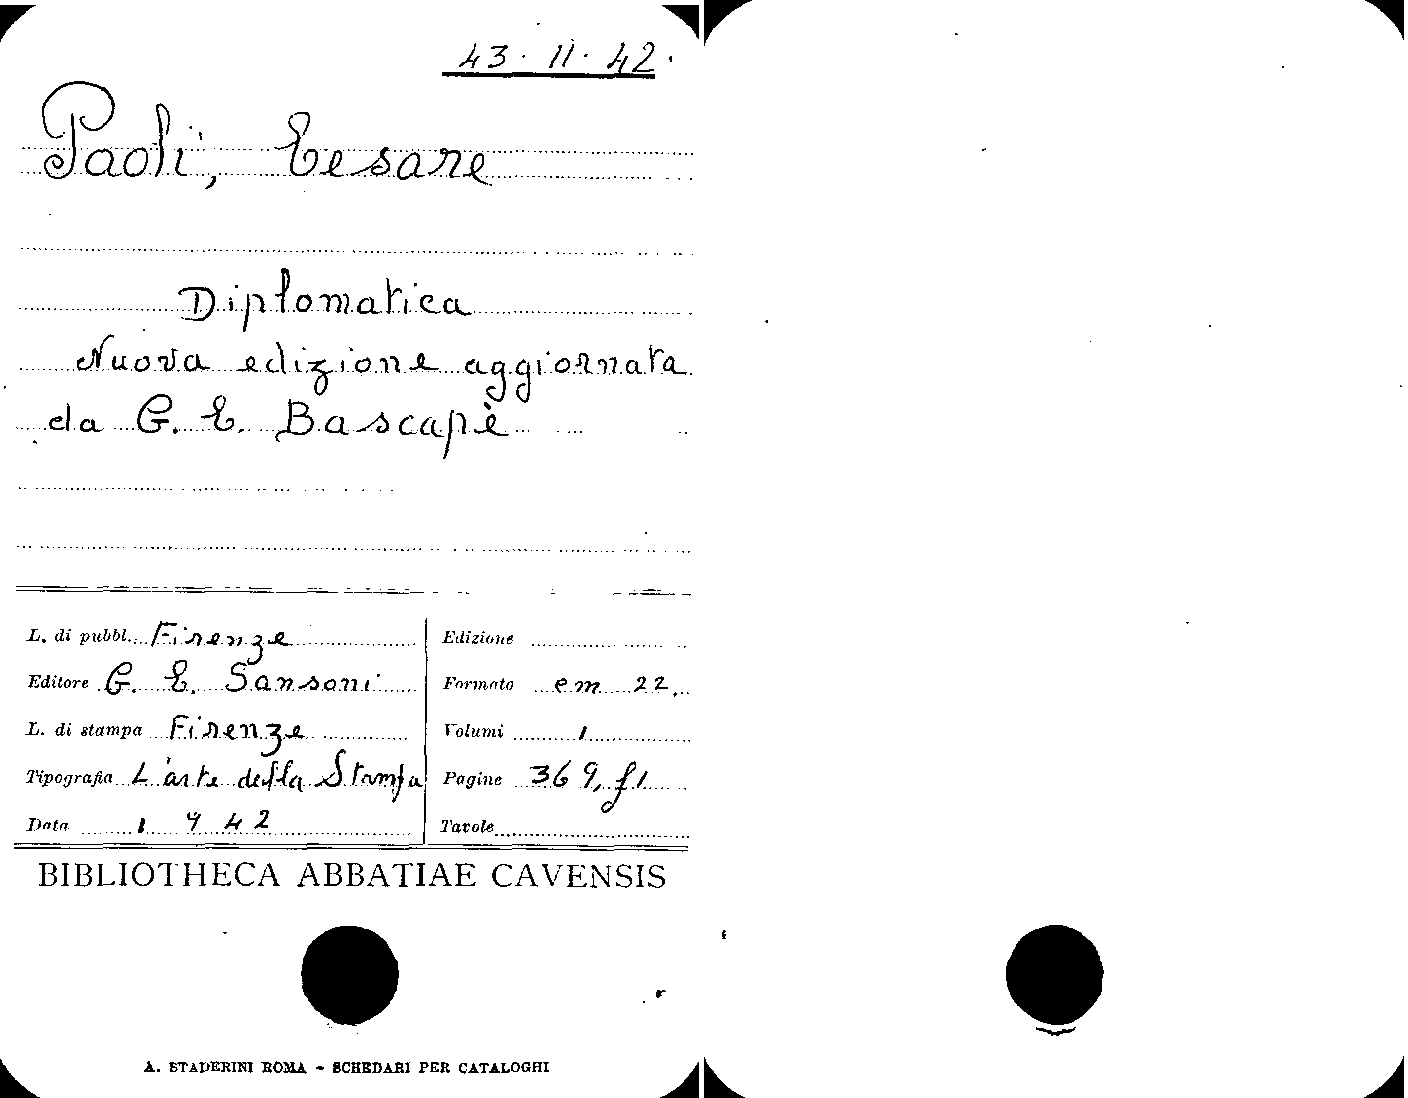 43. 11. 42.
Paoli, Cesare
Diplomatica
Nuova edizione aggiornata
da G. C. Bascapè
L. di pubbl. Firenze
Editore G. C. Sansoni
L. di stampa Firenze
Tipografia L'arte della Stampa
Data 1942
Edizione
Formato cm 22.
Volumi 1
Pagine 369, f1
Tavole
BIBLIOTHECA ABBATIAE CAVENSIS
A. STADERINI ROMA - SCHEDARI PER CATALOGHI